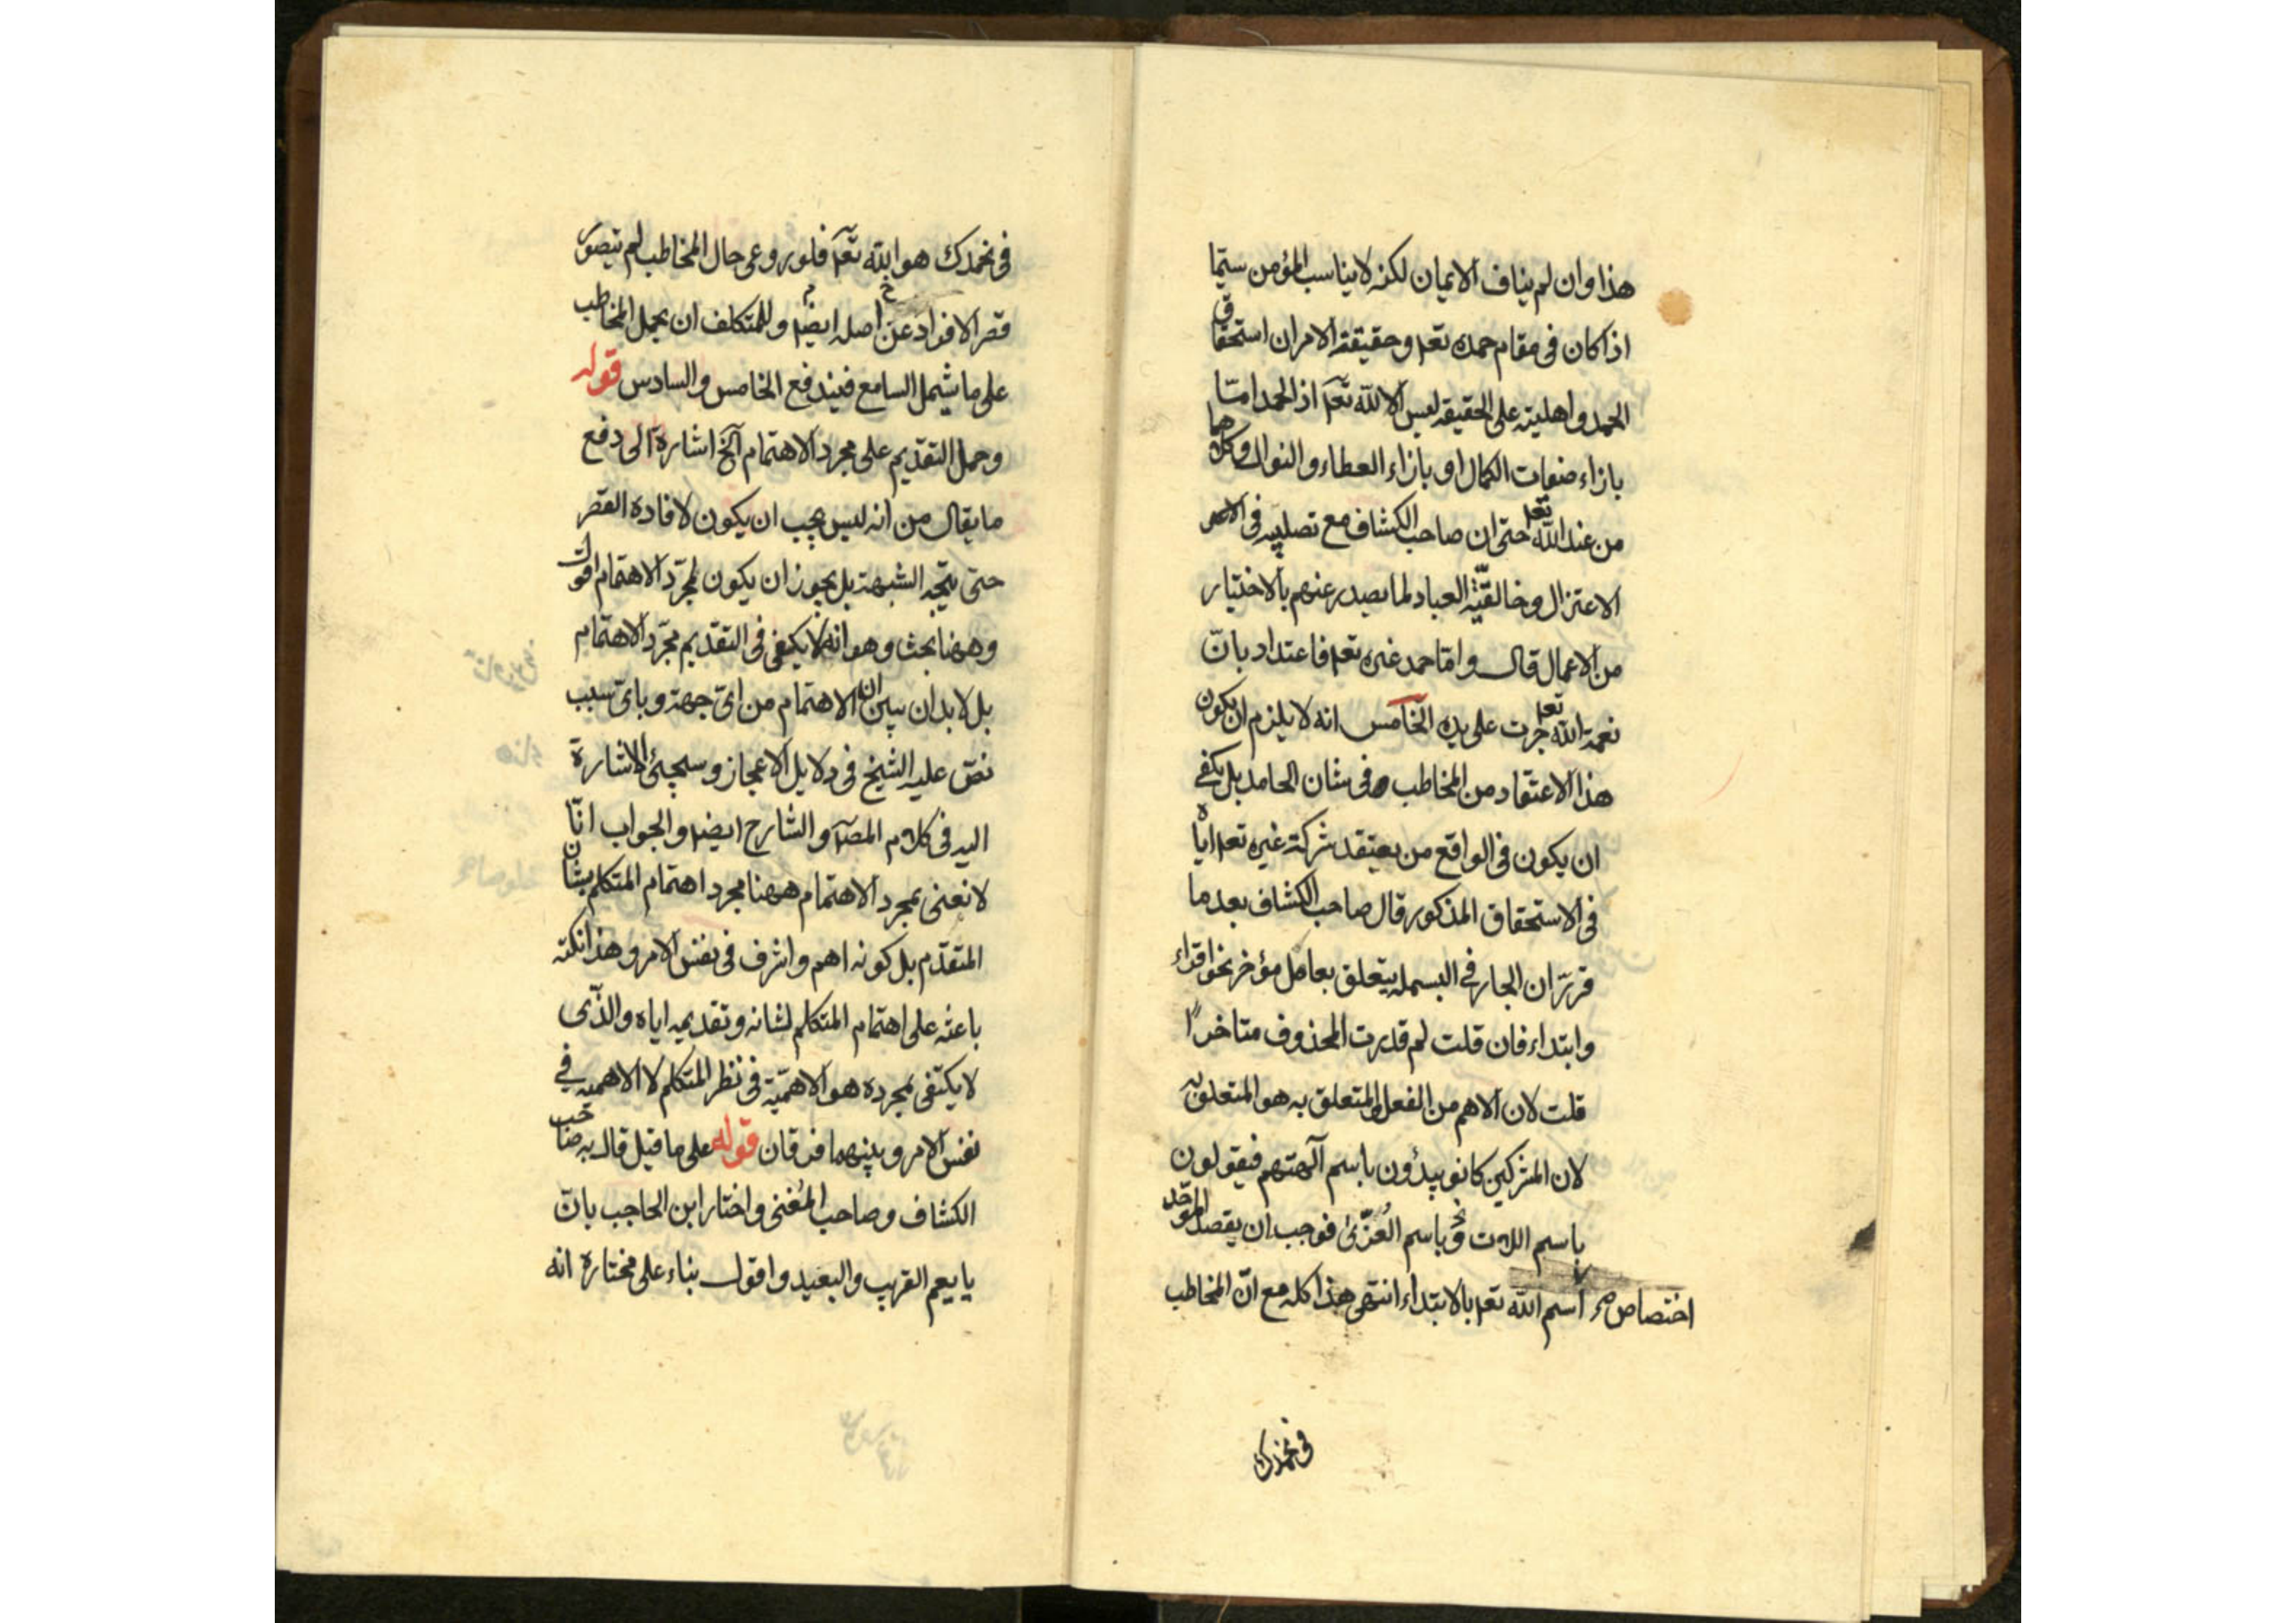 هذا وان لم يناف الايمان لكنه لا يناسب المؤمن سيّما
اذا كان فى مقام حمده تعم وحقيقة الامر ان استحقاق
الحمد واهليته على الحقيقة ليس الا لله تعم اذ الحمد امّا
بازاء صفات الكمال او بازاء العطاء والنوال وكلاهما
من عند الله تعم حتى ان صاحب الكشاف مع تصلبه فى
الاعتزال وخالقيّة العباد لما يصدر عنهم بالاختيار
من الاعمال قال وامّا حمد غيره تعم فاعتداد بانّ
نعمة الله تعم جرت على يده الخامس انه لا يلزم ان يكون
هذا الاعتقاد من المخاطب وفى شان الحامد بل يكفى
ان يكون فى الواقع من يعتقد شركة غيره تعم اياه
فى الاستحقاق المذكور قال صاحب الكشاف بعد ما
قرّر ان الجار فى البسملة يتعلق بعامل مؤخر نحو اقراء
وابتداء فان قلت لم قدرت المحذوف متاخرًا
قلت لان الاهم من الفعل والمتعلق به هو المتعلق به
لان المشركين كانو يبدؤن باسم آلهتهم فيقولون
باسم اللات وباسم العُزّىٰ فوجب ان يقصد الموحّد
اختصاص اسم الله تعم بالابتداء انتهى هذا كله مع انّ المخاطب
فى نحمدك
فى نحمدك هو الله تعم فلو روعى حال المخاطب لم يتصوّر
قصر الافراد عن اصله ايضا وللمتكلف ان يحمل المخاطب
على ما يشمل السامع فيندفع الخامس والسادس قوله
وحمل التقديم على مجرد الاهتمام آلخ اشارة الى دفع
ما يقال من انه ليس يجب ان يكون لافادة القصر
حتى يتجه الشبهة بل يجوز ان يكون لمجرّد الاهتمام اقول
وههنا بحث وهو انه لا يكفى فى التقديم مجرّد الاهتمام
بل لا بد ان يبين ان الاهتمام من اىّ جهة وباىّ سبب
نصّ عليه الشيخ فى دلايل الاعجاز وسيجئ الاشارة
اليه فى كلام المصآ والشارح ايضا والجواب انّا
لا نعنى بمجرد الاهتمام ههنا مجرد اهتمام المتكلم بشان
المتقدّم بل كونه اهم واشرف فى نفس الامر وهذا نكتة
باعثه على اهتمام المتكلم لشانه وتقديمه اياه والذّى
لا يكتفى بمجرده هو الاهمّية فى نظر المتكلم لا الاهمية فى
نفس الامر وبينهما فرقان قوله على ما قيل قال به صاحب
الكشاف وصاحب المُغنى واختار ابن الحاجب بانّ
يا يعم القريب والبعيد واقول بناء على مختاره انه